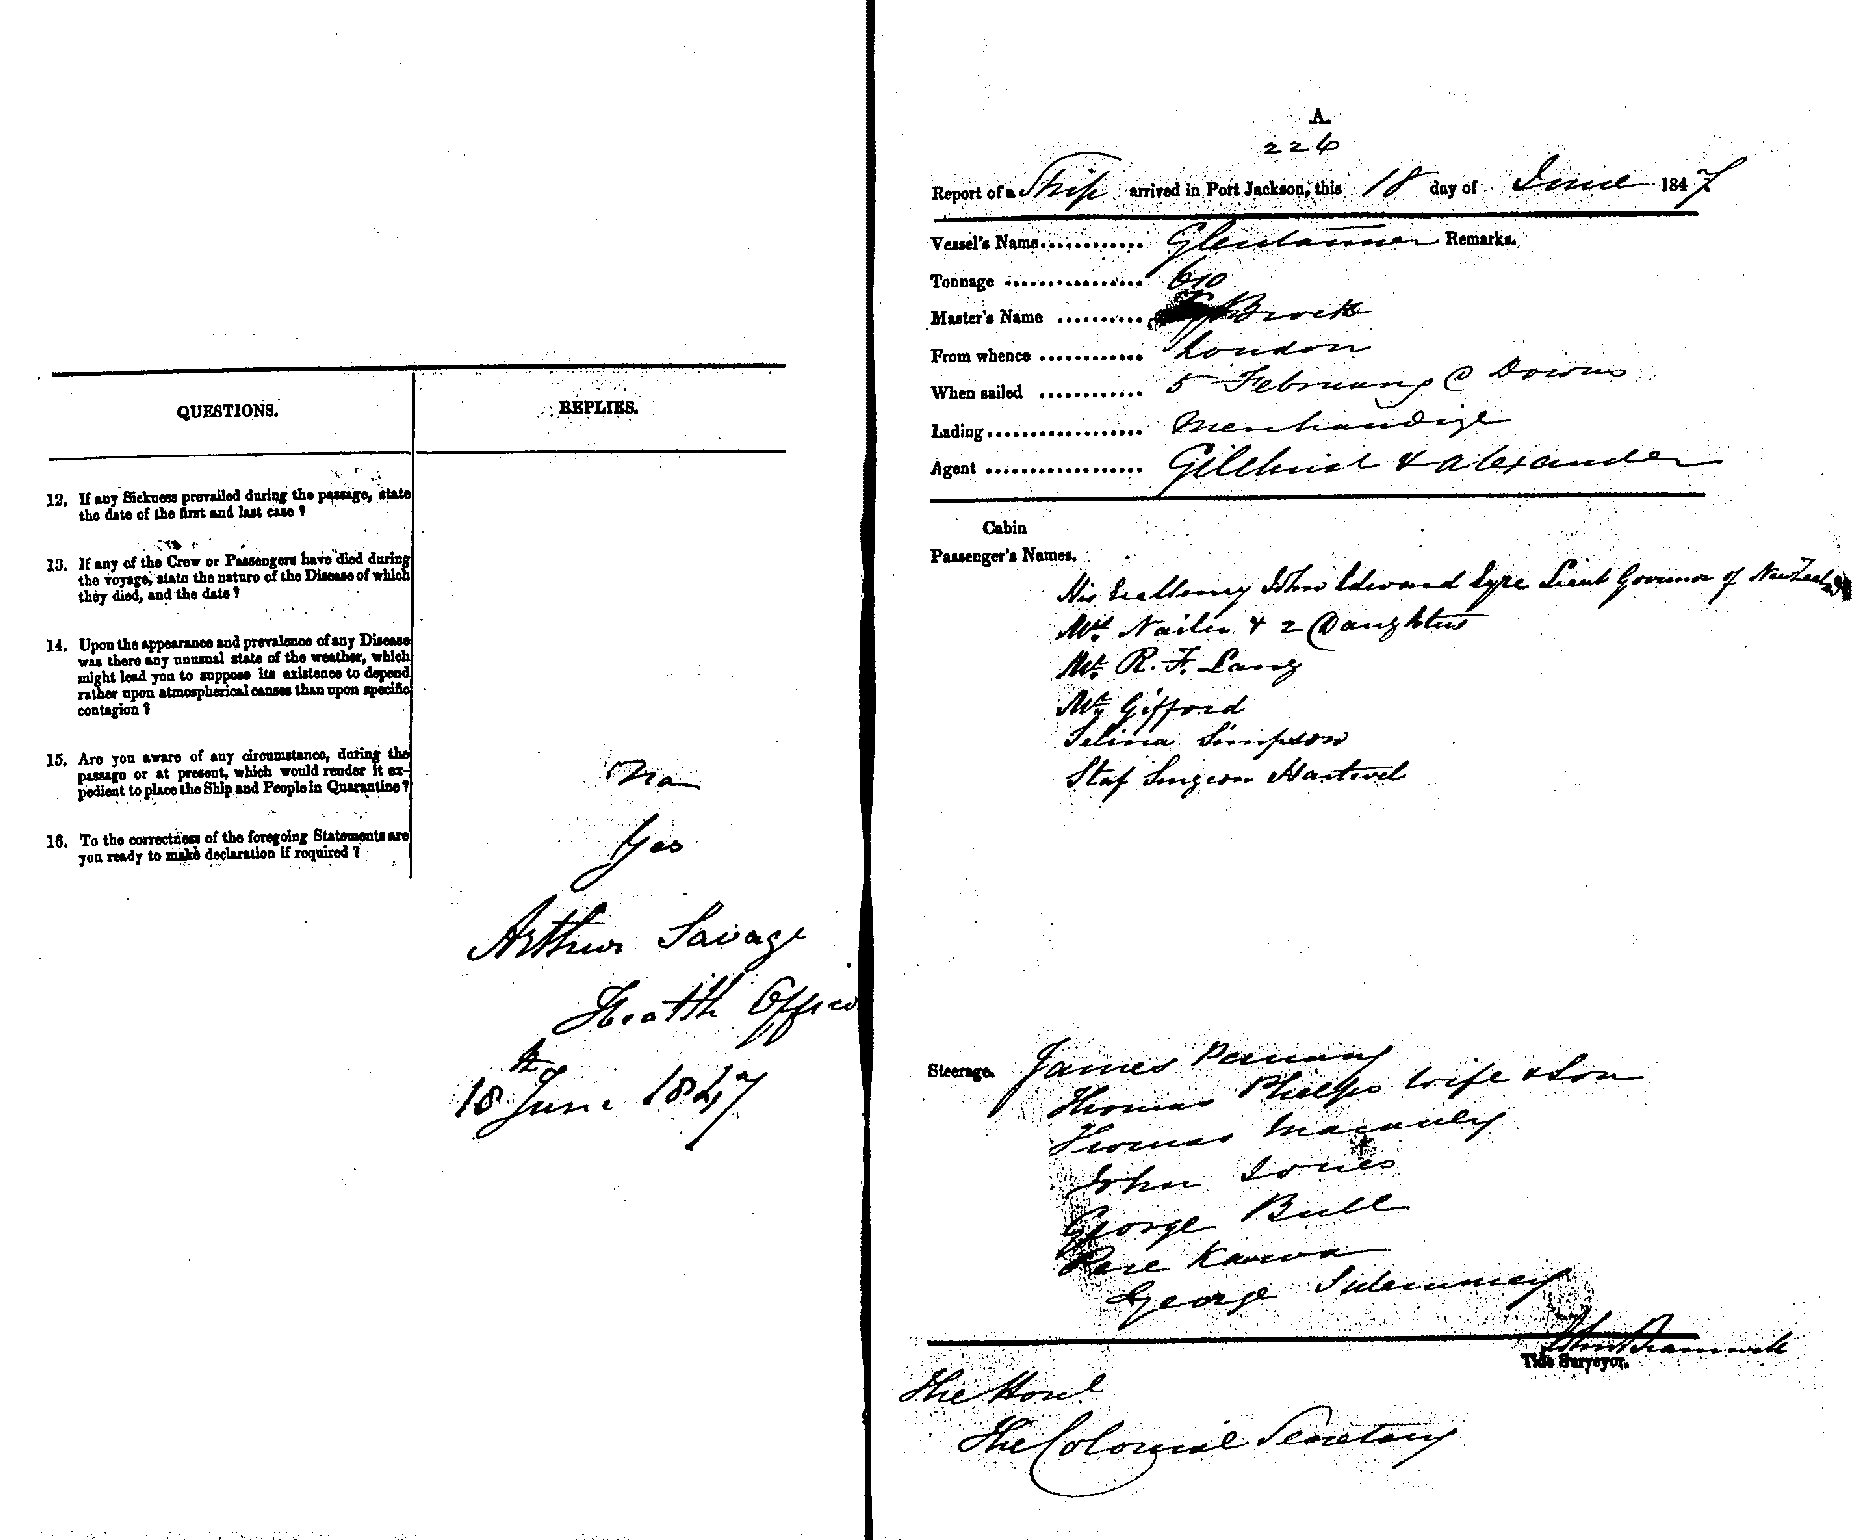 QUESTIONS.
REPLIES.
12. If any Sickness prevailed during the passage, state
the date of the first and last case ?
13. If any of the Crew or Passengers have died during
the voyage, state the nature of the Disease of which
they died, and the date ?
14. Upon the appearance and prevalence of any Disease
was there any unusual state of the weather, which
might lead you to suppose its existence to depend
rather upon atmospherical causes than upon specific
contagion ?
15. Are you aware of any circumstance, during the
passage or at present, which would render it ex-
pedient to place the Ship and People in Quarantine ?
No
16. To the correctness of the foregoing Statements are
you ready to make declaration if required ?
Yes
Arthur Savage
Health Officer
18th June 1847
A.
226
Report of a Ship arrived in Port Jackson, this 18 day of June 1847
Vessel's Name Glentanner Remarks.
Tonnage 610
Master's Name Brock
From whence London
When sailed 5 February @ Downs
Lading Merchandize
Agent Gilchrist & Alexander
Cabin
Passenger's Names.
His Excellency John Edward Eyre Lieut Governor of New Zealand
Nailer & 2 Daughters
Mr. R. F. Lang
Mr Gifford
Selina Simpson
Staf Surgeon
Steerage. James
Thomas Phelps wife & Son
Thomas
John Jones
George Bull
George
John Bramwell
Tide Surveyor.
The Honl
The Colonial Secretary